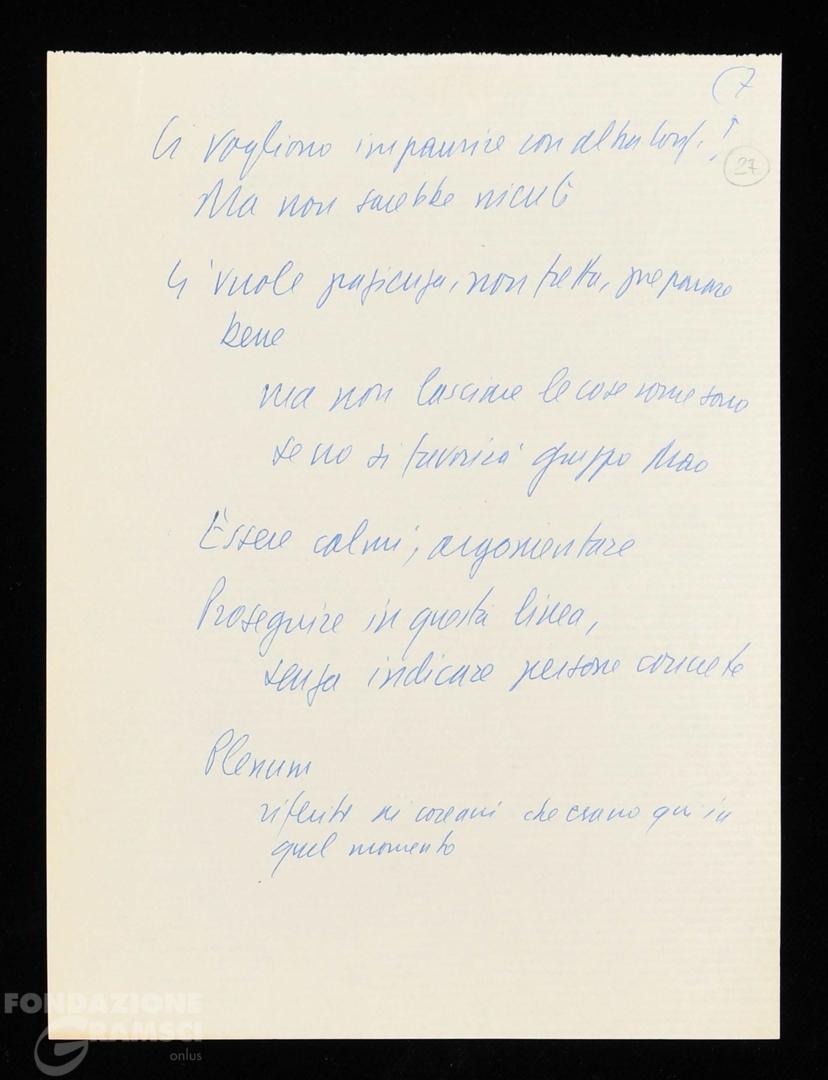 (7
Ci vogliono impaurire con altra conf.!
27
Ma non sarebbe niente
Ci vuole pazienza, non fretta, preparare
bene
ma non lasciare le cose come sono
se no si favorirà gruppo Mao
Essere calmi, argomentare
Proseguire in questa linea,
senza indicare persone concrete
Plenum
riferito ai coreani che erano qui in
quel momento
FONDAZIONE
GRAMSCI
onlus